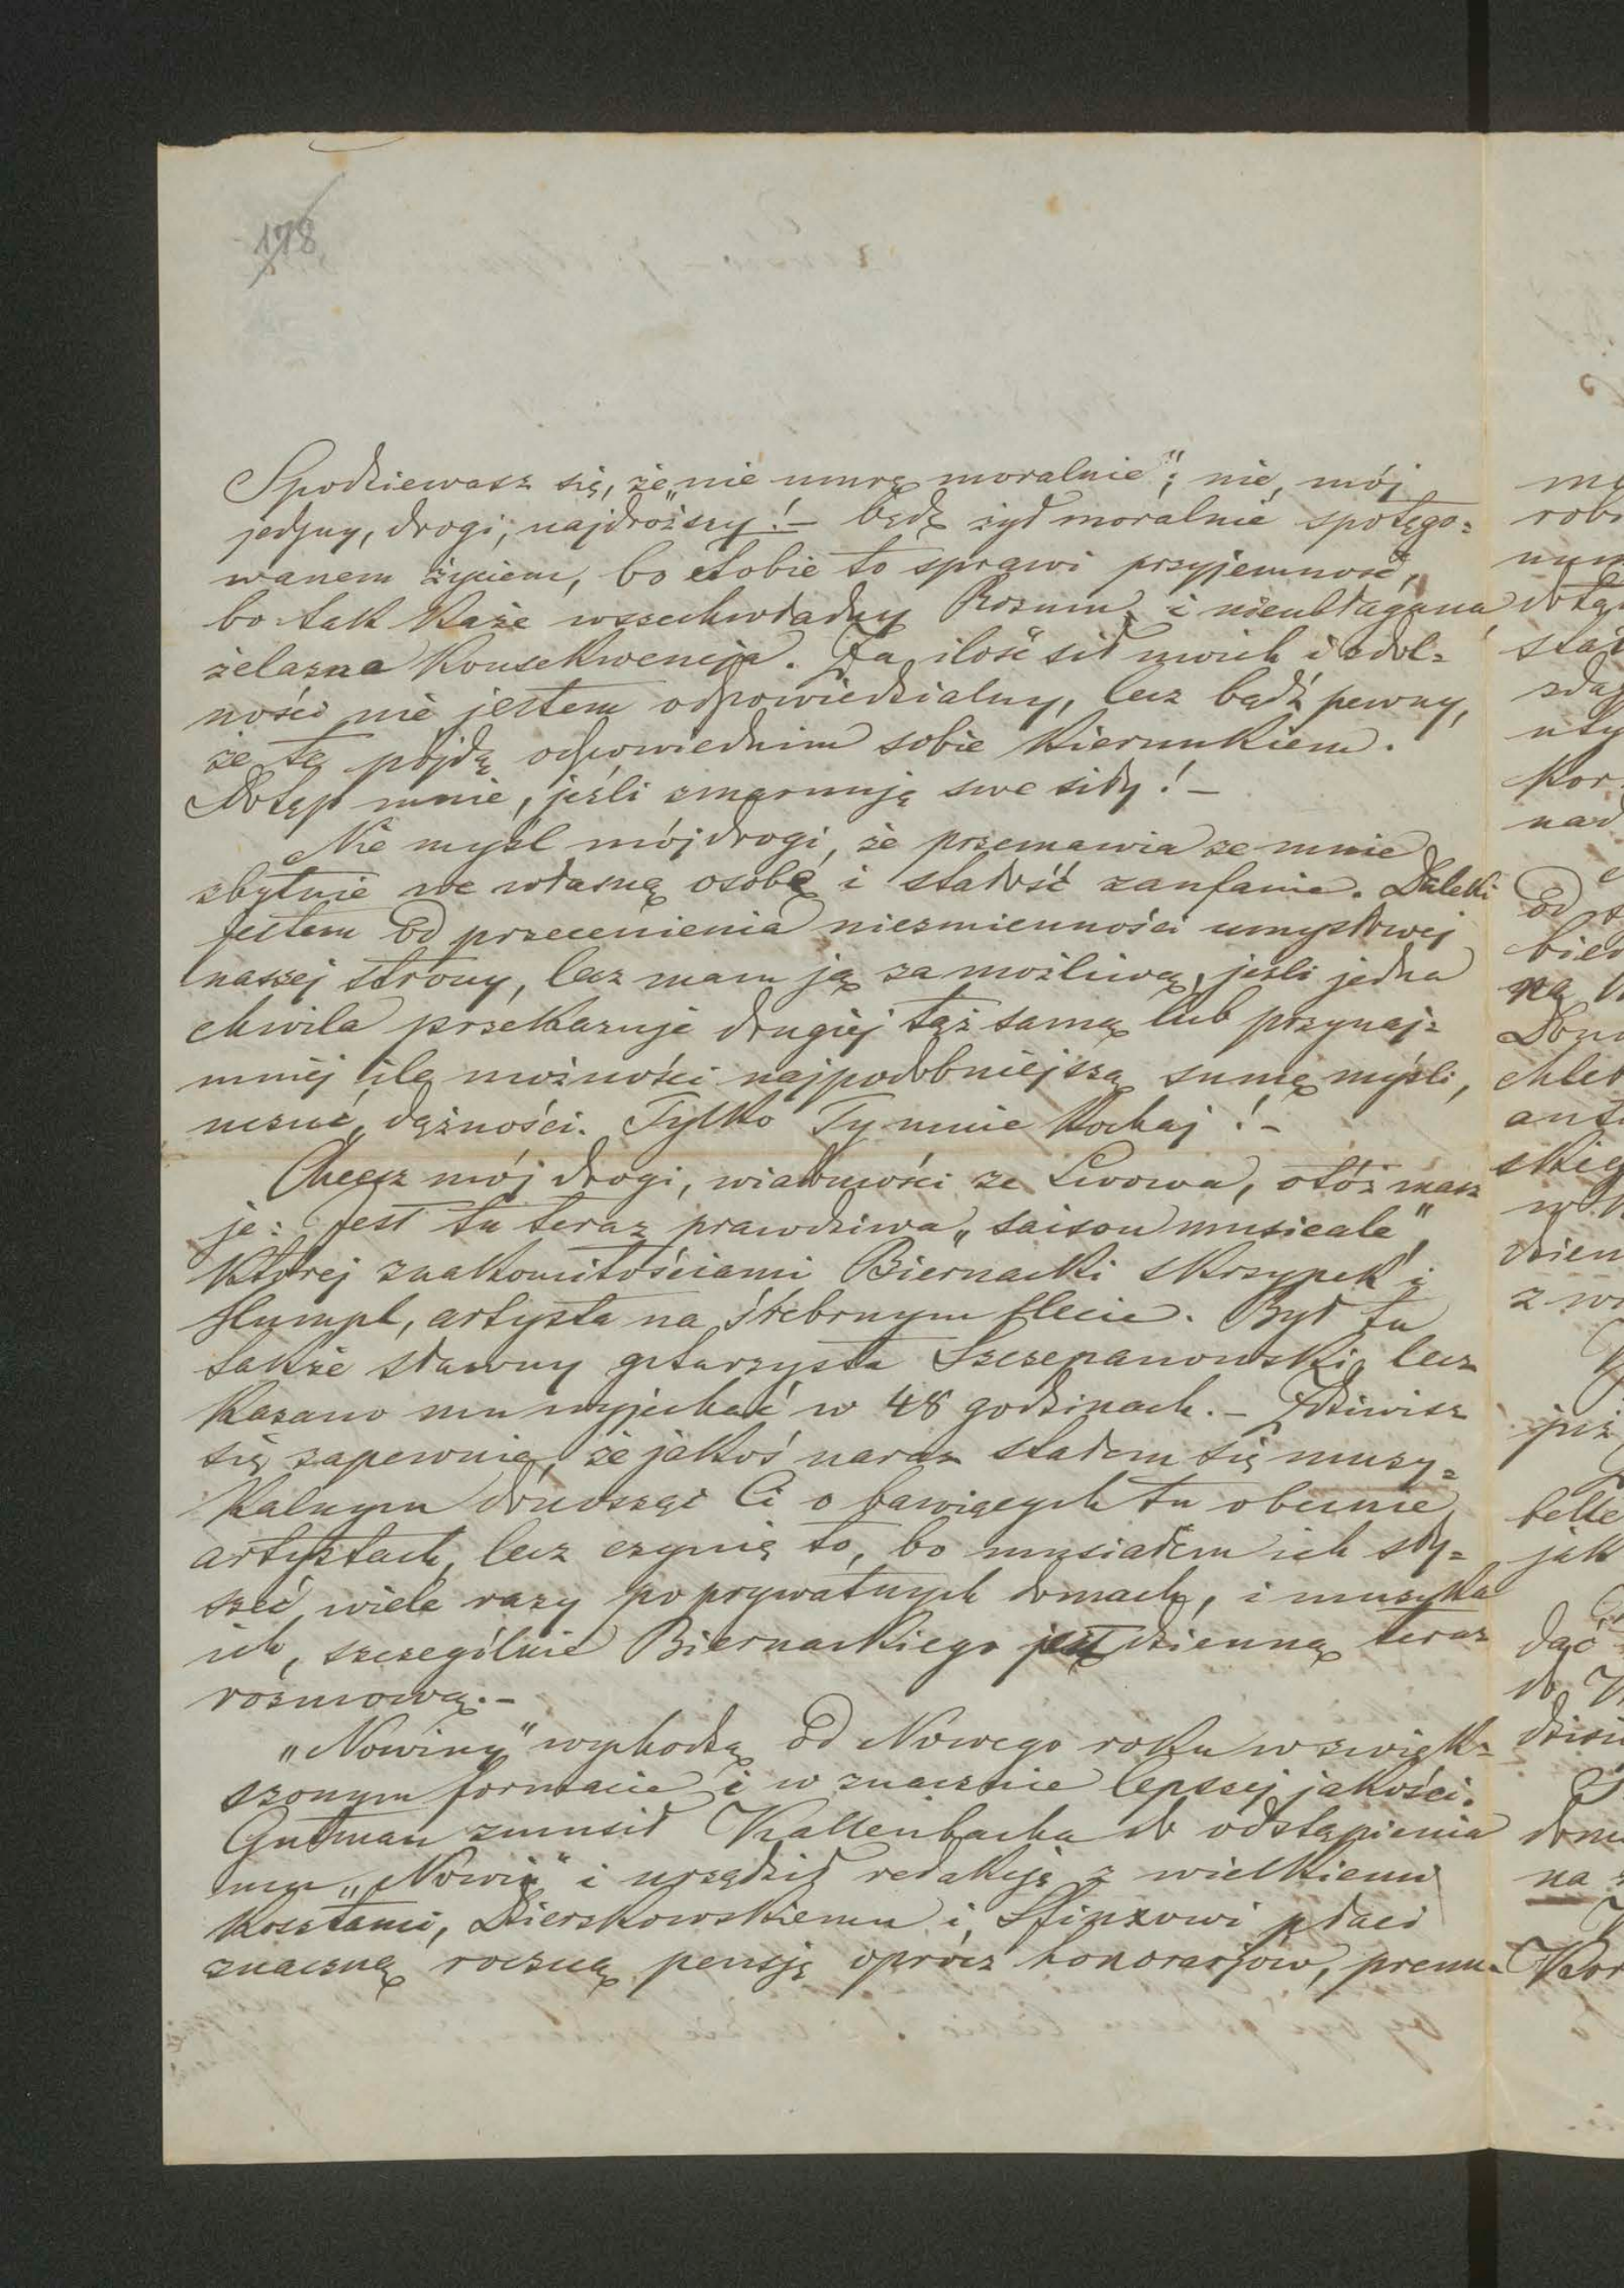 178
Spodziewasz się, że „nie umrę moralnie”; nie, mój
jedyny, drogi, najdroższy! – będę żył moralnie spotęgo=
wanem życiem, bo Tobie to sprawi przyjemność,
bo tak każe wszechwładny Rozum i nieubłagana
żelazna Konsekwencja. Za ilość sił mych i zdol=
ności nie jestem odpowiedzialny, lecz bądź pewny,
że te pójdą odpowiednim sobie kierunkiem.
Potęp mnie, jeśli zmarnuję swe siły! –
Nie myśl mój drogi, że przemawia ze mnie
zbytnie we własną osobę i stałość zaufanie. Daleki
jestem od przecenienia niezmienności umysłowej
naszej strony, lecz mam ją za możliwą, jeśli jedna
chwila przekazuje drugiej tąż samą lub przynaj=
mniej ile możności najpodobniejszą sumę myśli,
uczuć, dążności. Tylko Ty mnie kochaj! –
Chcesz mój drogi, wiadomości ze Lwowa, otóż masz
je: Jest tu teraz prawdziwa „saison musicale”,
której znakomitościami Biernacki skrzypek i
Humpl, artysta na śrebrnym flecie. Był tu
także sławny gitarzysta Szczepanowski, lecz
kazano mu wyjechać w 48 godzinach. – Zdziwisz
się zapewnie, że jakoś naraz stałem się muzy=
kalnym donosząc Ci o bawiących tu obecnie
artystach, lecz czynię to, bo musiałem ich sły=
szeć wiele razy po prywatnych domach, i muzyka
ich, szczególnie Biernackiego jest dzienną teraz
rozmową. –
„Nowiny” wychodzą od Nowego roku w zwięk=
szonym formacie i w znacznie lepszej jakości.
Gutman zmusił Kallenbacha do odstąpienia
mu „Nowin” i urządził redakcję z wielkiemi
kosztami, Dzierzkowskiemu i Sfinxowi płaci
znaczną roczną pensję oprócz honorarjów, prenu=